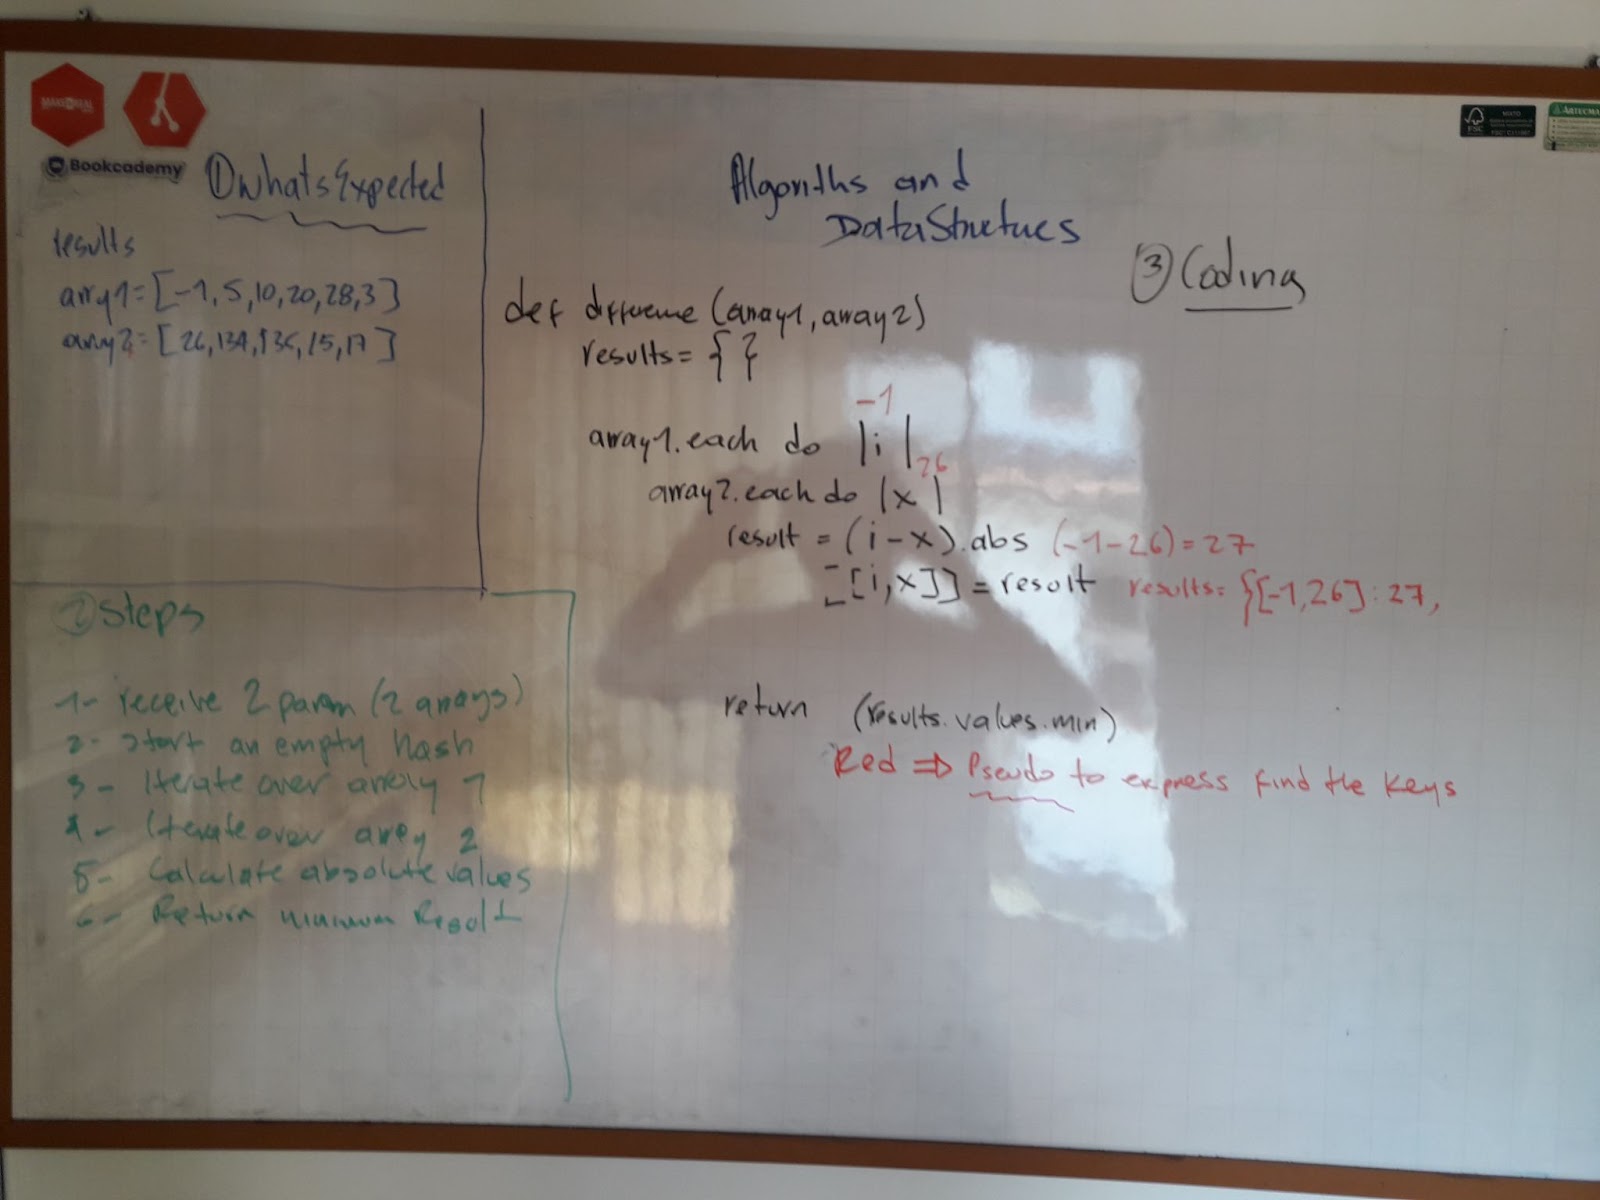 MAKE IT REAL
Bookcademy
① whats Expected
results
arry1=[-1,5,10,20,28,3]
arry2=[26,134,135,15,17]
② Steps
1- receive 2 param (2 arrays)
2- Start an empty hash
3- Iterate over array 1
4- Iterate over array 2
5- Calculate absolute values
6- Return minimum Result
Algoriths and
Data Structures
③ Coding
def difference (array1, array2)
results= { }
-1
array1.each do |i|
26
array2.each do |x|
result = (i-x).abs (-1-26)=27
[[i,x]] = result results= {[-1,26]:27,
return (results.values.min)
Red ⇒ Pseudo to express find the keys
FSC
MIXTO
ARTECMA